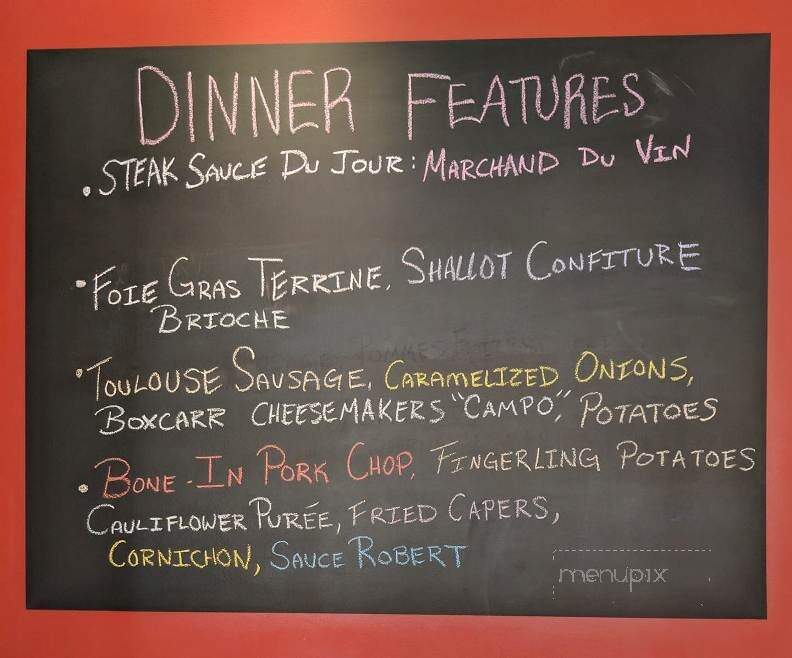 DINNER FEATURES
• STEAK SAUCE DU JOUR: MARCHAND DU VIN
• FOIE GRAS TERRINE, SHALLOT CONFITURE
BRIOCHE
• TOULOUSE SAUSAGE, CARAMELIZED ONIONS,
BOXCARR CHEESEMAKERS "CAMPO", POTATOES
• BONE-IN PORK CHOP, FINGERLING POTATOES
CAULIFLOWER PURÉE, FRIED CAPERS,
CORNICHON, SAUCE ROBERT
menupix